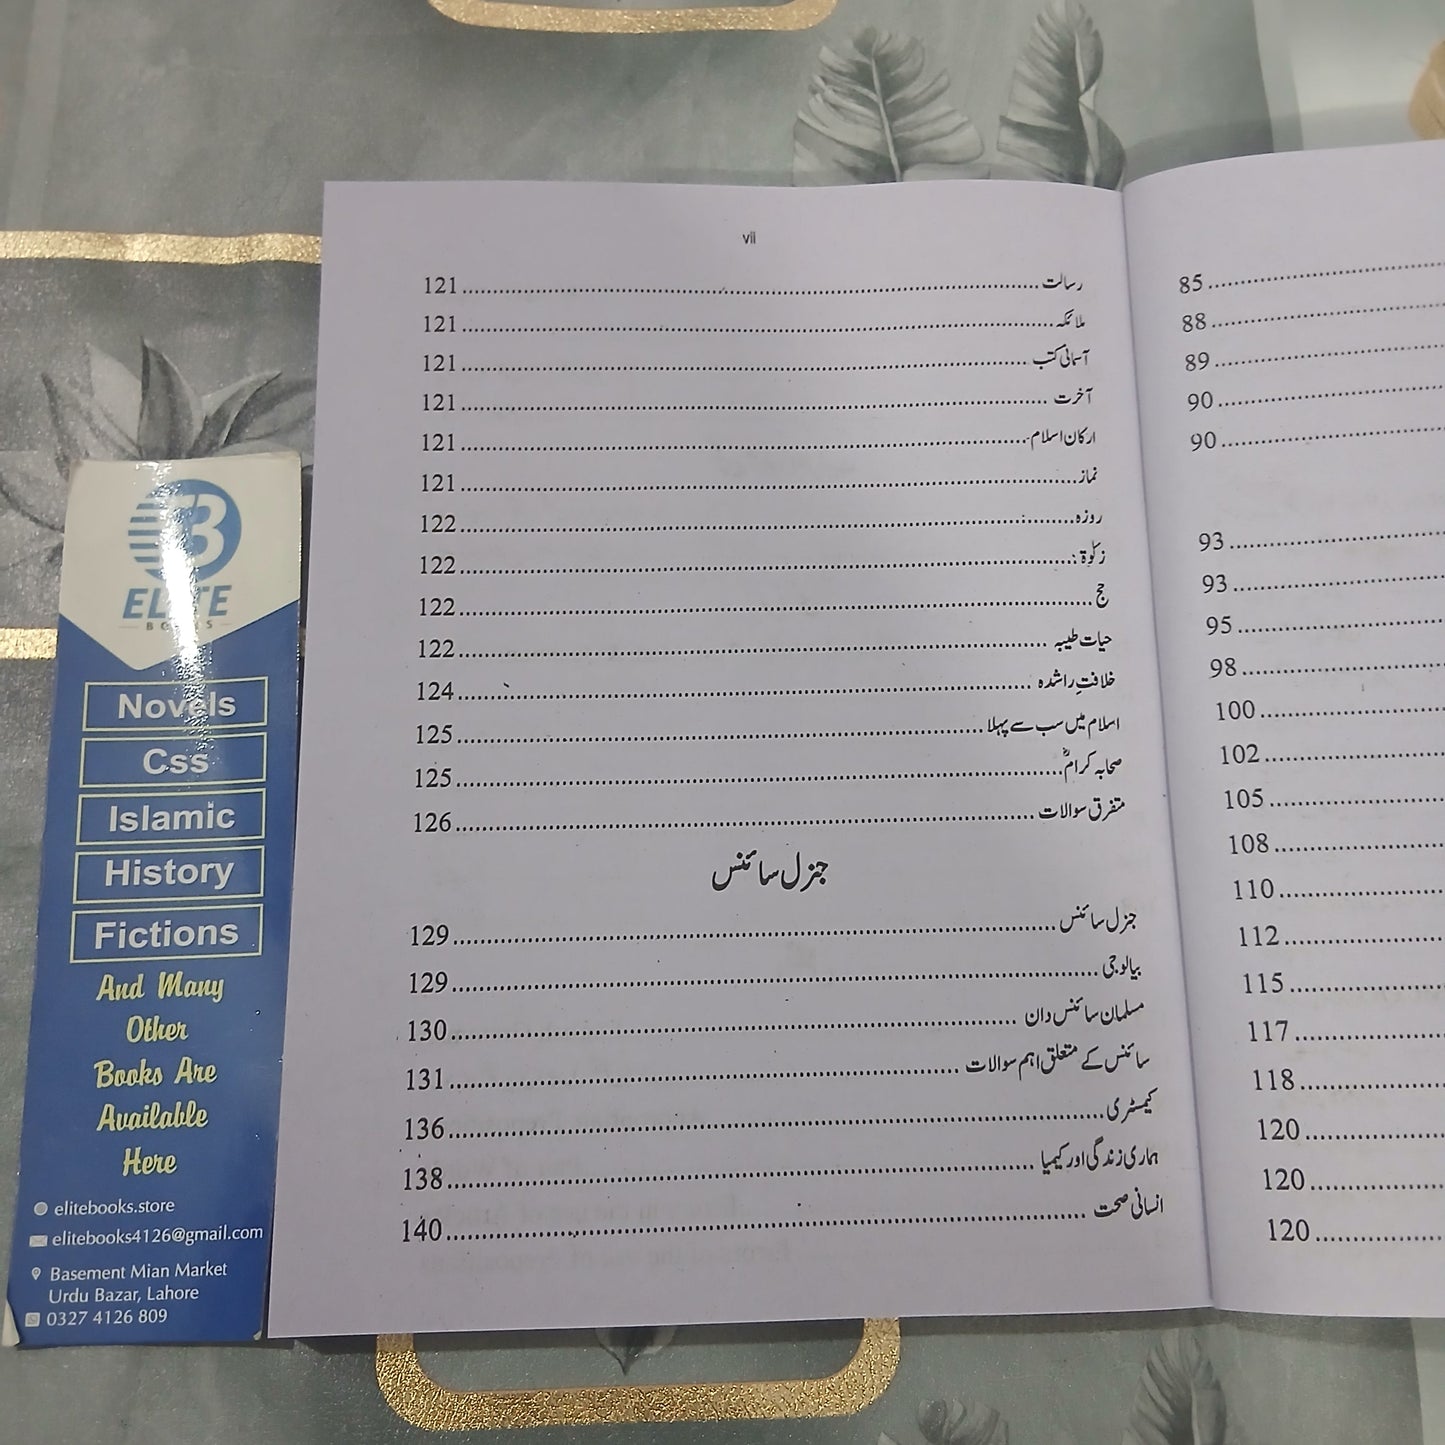 vii
رسالت 121
ملائکہ 121
آسمانی کتب 121
آخرت 121
ارکان اسلام 121
نماز 121
روزہ 122
زکوٰۃ : 122
حج 122
حیات طیبہ 122
خلافتِ راشدہ 124
اسلام میں سب سے پہلا 125
صحابہ کرامؓ 125
متفرق سوالات 126
جنرل سائنس
جنرل سائنس 129
بیالوجی 129
مسلمان سائنس دان 130
سائنس کے متعلق اہم سوالات 131
کیمسٹری 136
ہماری زندگی اور کیمیا 138
انسانی صحت 140
85
88
89
90
90
93
93
95
98
100
102
105
108
110
112
115
117
118
120
120
120
ELITE
BOOKS
Novels
Css
Islamic
History
Fictions
And Many
Other
Books Are
Available
Here
elitebooks.store
elitebooks4126@gmail.com
Basement Mian Market
Urdu Bazar, Lahore
0327 4126 809